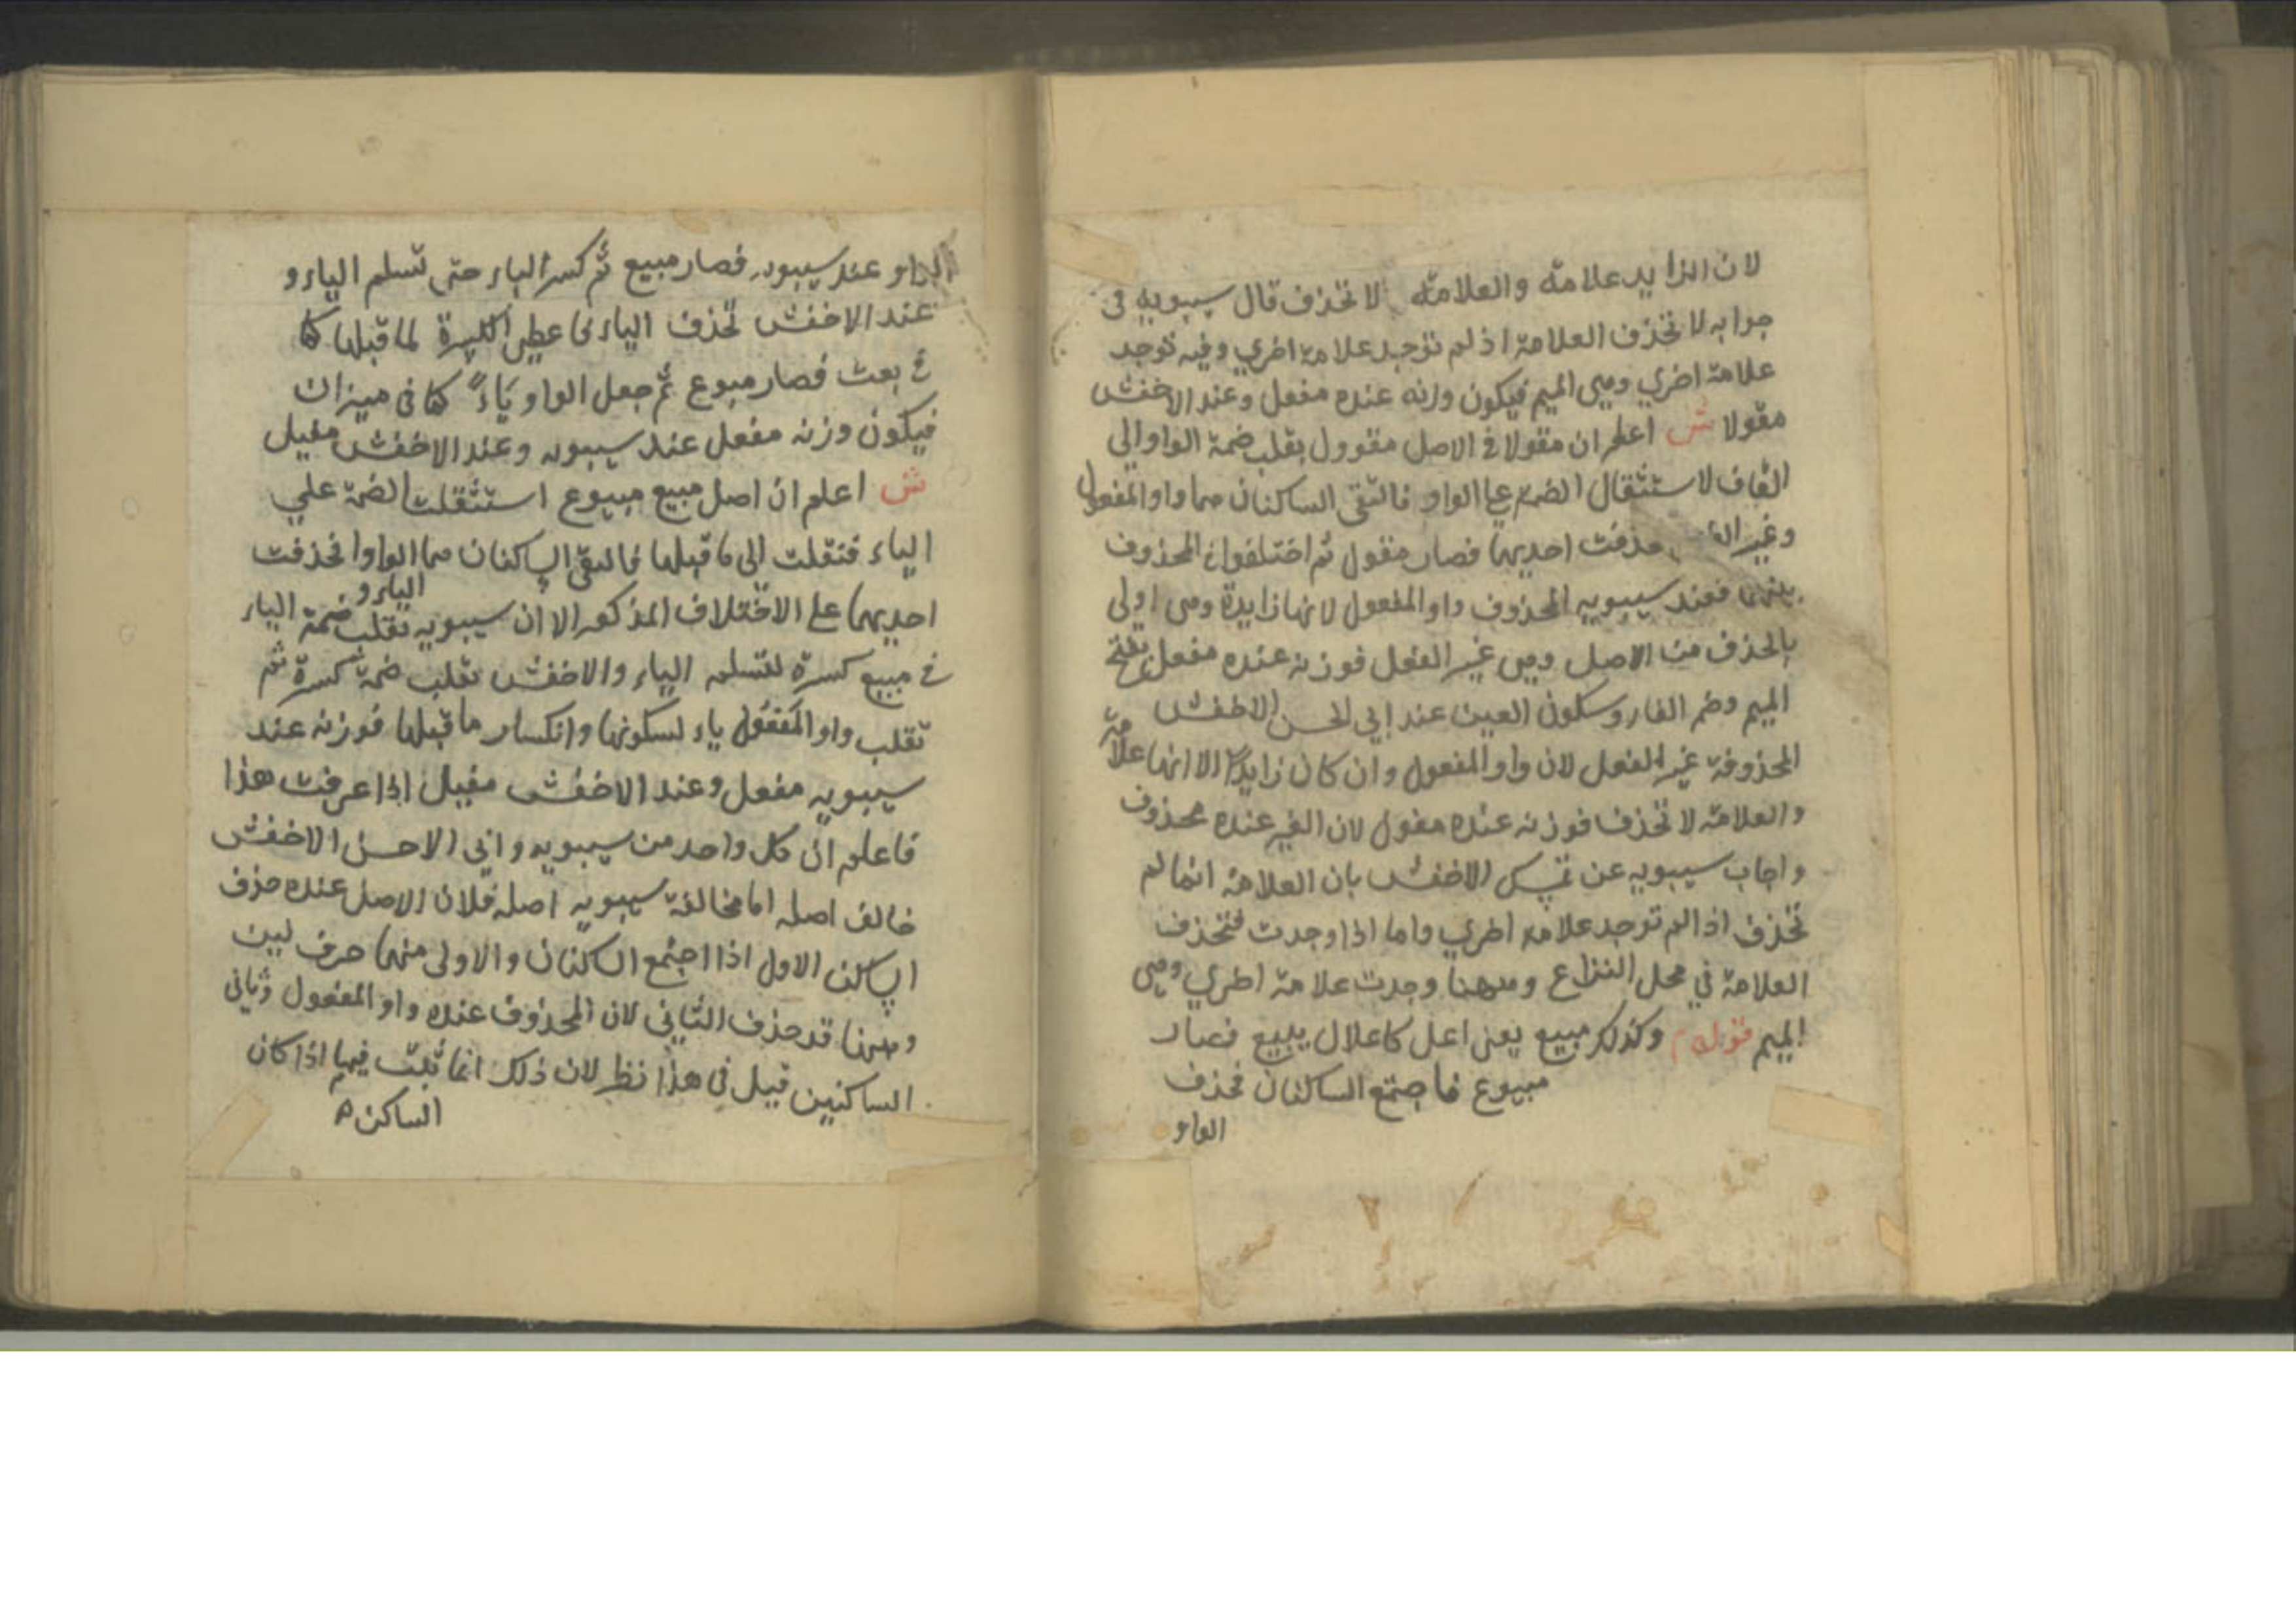 لان الزايد علامة والعلامة لا تحذف قال سيبويه فى
جوابه لا تحذف العلامة اذ لم توجد علامة اخري وفيه توجد
علامة اخري وهى الميم فيكون وزنه عنده مفعل وعند الاخفش
مفولا ش اعلم ان مقولا فى الاصل مقوول بقلب ضمة الواو الى
القاف لاستثقال الضمة على الواو فالتقى الساكنان هما واو المفعول
وغير حذفت احديهما فصار مقول ثم اختلفوا فى المحذوف
بينهما فعند سيبويه المحذوف واو المفعول لانها زايدة وهى اولى
بالحذف من الاصل وهى غير الفعل فوزنه عنده مفعل بفتح
الميم وضم الفاء وسكون العين عند ابى الحسن الاخفش
المحذوفة غير الفعل لان واو المفعول وان كان زايدا الا انها علامة
والعلامة لا تحذف فوزنه عنده مفول لان الغير عنده محذوف
واجاب سيبويه عن تمسك الاخفش بان العلامة انما لم
تحذف اذا لم توجد علامة اخري واما اذا وجدت فتحذف
العلامة في محل النزاع وههنا وجدت علامة اخري وهى
الميم قوله وكذلك مبيع يعنى اعل كاعلال يبيع فصار
مبيوع فاجتمع الساكنان فحذف
الواو
الواو عند سيبويه فصار مبيع ثم كسر الباء حتى تسلم الياء و
عند الاخفش تحذف الياء فاعطى الكسرة لما قبلها كما
فى بعت فصار مبوع ثم جعل الواو ياء كما فى ميزان
فيكون وزنه مفعل عند سيبويه وعند الاخفش مفيل
ش اعلم ان اصل مبيع مبيوع استثقلت الضمة علي
الياء فنقلت الى ما قبلها فالتقى الساكنان هما الواو الياء و فحذفت
احديهما على الاختلاف المذكور الا ان سيبويه تقلب ضمة الباء
فى مبيع كسرة لتسلم الياء والاخفش تقلب ضمة كسرة ثم
تقلب واو المفعول ياء لسكونها وانكسار ما قبلها فوزنه عند
سيبويه مفعل وعند الاخفش مفيل اذا عرفت هذا
فاعلم ان كل واحد من سيبويه وابي الاحسن الاخفش
خالف اصله اما مخالفة سيبويه اصله فلان الاصل عنده حذف
الساكن الاول اذا اجتمع الساكنان والاولى منهما حرف لين
وههنا قد حذف الثاني لان المحذوف عنده واو المفعول وثانى
الساكنين قيل فى هذا نظر لان ذلك انما ثبت فيهما اذا كان
الساكن